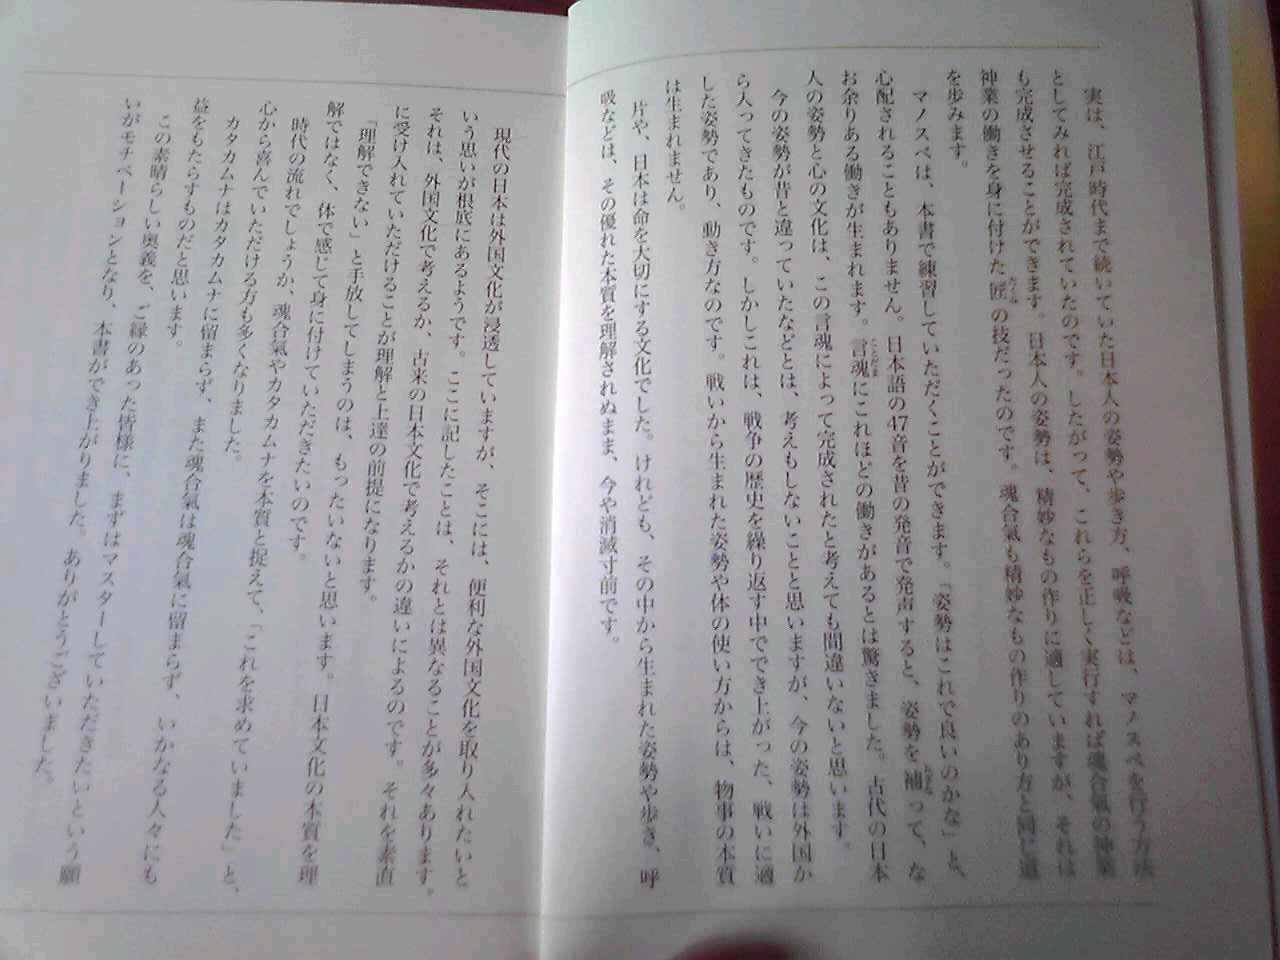 実は、江戸時代まで続いていた日本人の姿勢や歩き方、呼吸などは、マノスベを行う方法
としてみれば完成されていたのです。したがって、これらを正しく実行すれば魂合氣の神業
も完成させることができます。日本人の姿勢は、精妙なもの作りに適していますが、それは
神業の働きを身に付けた匠の技だったのです。魂合氣も精妙なもの作りのあり方と同じ道
たくみ
を歩みます。
マノスベは、本書で練習していただくことができます。「姿勢はこれで良いのかな」と、
心配されることもありません。日本語の47音を昔の発音で発声すると、姿勢を補って、な
おぎな
お余りある働きが生まれます。言魂にこれほどの働きがあるとは驚きました。古代の日本
ことだま
人の姿勢と心の文化は、この言魂によって完成されたと考えても間違いないと思います。
今の姿勢が昔と違っていたなどとは、考えもしないことと思いますが、今の姿勢は外国か
ら入ってきたものです。しかしこれは、戦争の歴史を繰り返す中ででき上がった、戦いに適
した姿勢であり、動き方なのです。戦いから生まれた姿勢や体の使い方からは、物事の本質
は生まれません。
片や、日本は命を大切にする文化でした。けれども、その中から生まれた姿勢や歩き、呼
吸などは、その優れた本質を理解されぬまま、今や消滅寸前です。
現代の日本は外国文化が浸透していますが、そこには、便利な外国文化を取り入れたいと
いう思いが根底にあるようです。ここに記したことは、それとは異なることが多々あります。
それは、外国文化で考えるか、古来の日本文化で考えるかの違いによるのです。それを素直
に受け入れていただけることが理解と上達の前提になります。
「理解できない」と手放してしまうのは、もったいないと思います。日本文化の本質を理
解ではなく、体で感じて身に付けていただきたいのです。
時代の流れでしょうか、魂合氣やカタカムナを本質と捉えて、「これを求めていました」と、
心から喜んでいただける方も多くなりました。
カタカムナはカタカムナに留まらず、また魂合氣は魂合氣に留まらず、いかなる人々にも
益をもたらすものだと思います。
この素晴らしい奥義を、ご縁のあった皆様に、まずはマスターしていただきたいという願
いがモチベーションとなり、本書ができ上がりました。ありがとうございました。